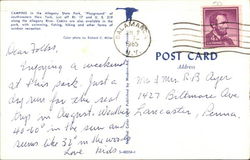 CAMPING in the Allegany State Park, "Playground" of
southwestern New York, just off Rt. 17 and U. S. 219
along the Allegany River. Cabins are also available in the
park, with swimming, fishing, hiking and other forms of
outdoor recreation.
Color photo by Richard C. Miller
SALAMANCA
1965
N.Y.
POST CARD
Address
Dear Folks,
Enjoying a weekend
at this park. Just a
dry run for the real
trip in August. Weather
40-60° in the sun and
rains like 52° in the woods
Love Kids
Mr & Mrs R B Oyer
1427 Biltmore Ave
Lancaster, Penna.